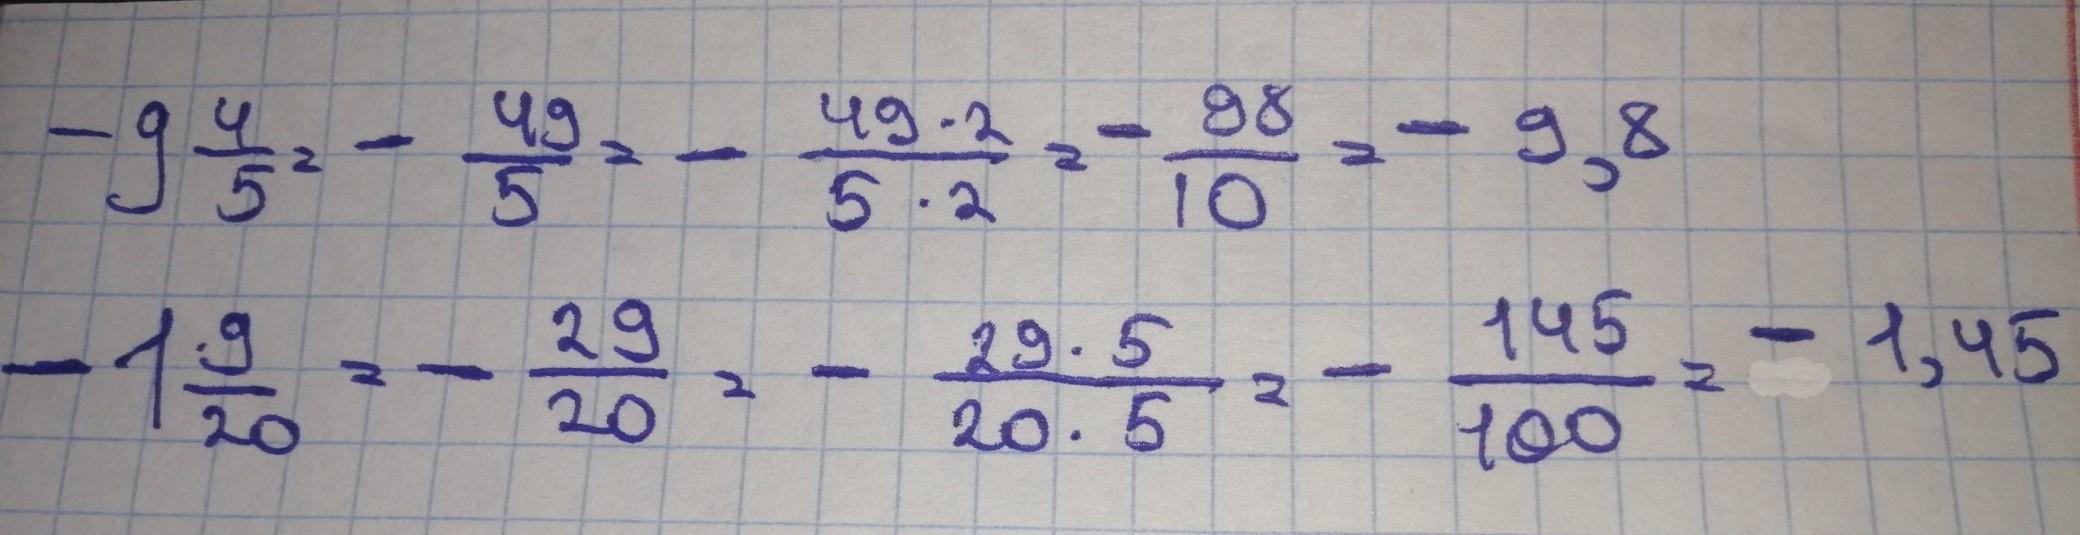 -9 4/5 = - 49/5 = - 49·2/5·2 = - 98/10 = - 9,8
-1 9/20 = - 29/20 = - 29·5/20·5 = - 145/100 = - 1,45